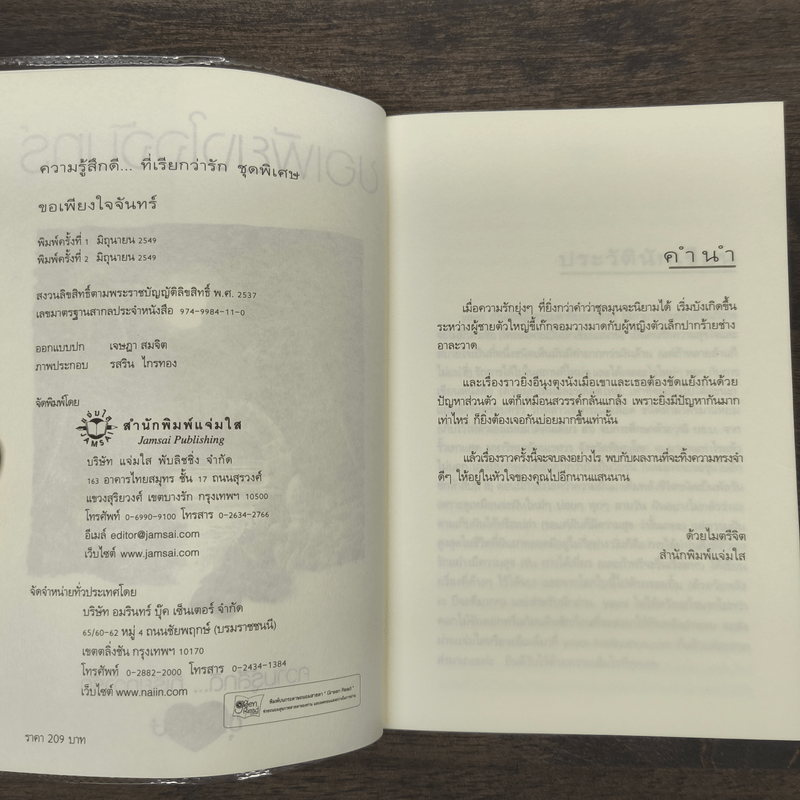 ความรู้สึกดี... ที่เรียกว่ารัก ชุดพิเศษ
ขอเพียงใจจันทร์
พิมพ์ครั้งที่ 1 มิถุนายน 2549
พิมพ์ครั้งที่ 2 มิถุนายน 2549
สงวนลิขสิทธิ์ตามพระราชบัญญัติลิขสิทธิ์ พ.ศ. 2537
เลขมาตรฐานสากลประจำหนังสือ 974-9984-11-0
ออกแบบปก เจษฎา สมจิต
ภาพประกอบ รสริน ไกรทอง
จัดพิมพ์โดย
สำนักพิมพ์แจ่มใส
Jamsai Publishing
บริษัท แจ่มใส พับลิชชิ่ง จำกัด
163 อาคารไทยสมุทร ชั้น 17 ถนนสุรวงศ์
แขวงสุริยวงศ์ เขตบางรัก กรุงเทพฯ 10500
โทรศัพท์ 0-6990-9100 โทรสาร 0-2634-2766
อีเมล์ editor@jamsai.com
เว็บไซต์ www.jamsai.com
จัดจำหน่ายทั่วประเทศโดย
บริษัท อมรินทร์ บุ๊ค เซ็นเตอร์ จำกัด
65/60-62 หมู่ 4 ถนนชัยพฤกษ์ (บรมราชชนนี)
เขตตลิ่งชัน กรุงเทพฯ 10170
โทรศัพท์ 0-2882-2000 โทรสาร 0-2434-1384
เว็บไซต์ www.naiin.com
Green Read
ราคา 209 บาท
คำนำ
เมื่อความรักยุ่งๆ ที่ยิ่งกว่าคำว่าชุลมุนจะนิยามได้ เริ่มบังเกิดขึ้น
ระหว่างผู้ชายตัวใหญ่ขี้เก๊กจอมวางมาดกับผู้หญิงตัวเล็กปากร้ายช่าง
อาละวาด
และเรื่องราวยิ่งอีนุงตุงนังเมื่อเขาและเธอต้องขัดแย้งกันด้วย
ปัญหาส่วนตัว แต่ก็เหมือนสวรรค์กลั่นแกล้ง เพราะยิ่งมีปัญหากันมาก
เท่าไหร่ ก็ยิ่งต้องเจอกันบ่อยมากขึ้นเท่านั้น
แล้วเรื่องราวครั้งนี้จะจบลงอย่างไร พบกับผลงานที่จะทิ้งความทรงจำ
ดีๆ ให้อยู่ในหัวใจของคุณไปอีกนานแสนนาน
ด้วยไมตรีจิต
สำนักพิมพ์แจ่มใส